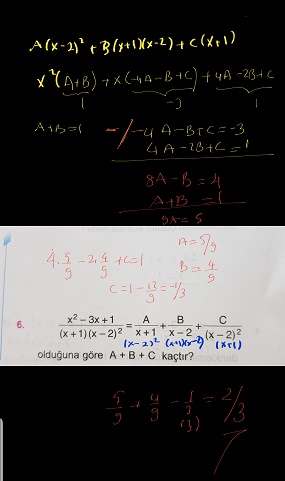 A(x-2)² + B(x+1)(x-2) + C(x+1)
x²(A+B) + x(-4A-B+C) + 4A-2B+C
1 -3 1
A+B=1 -/ -4A-B+C=-3
4A-2B+C=1
8A-B=4
A+B=1
9A=5
A=5/9
4.5/9 - 2.4/9 + C=1
B=4/9
C=1-12/9=-1/3
6. x² - 3x + 1 / (x + 1)(x - 2)² = A / x + 1 + B / x - 2 + C / (x - 2)²
(x-2)² (x+1)(x-2) (x+1)
olduğuna göre A + B + C kaçtır?
5/9 + 4/9 - 1/3 = 2/3
(3)